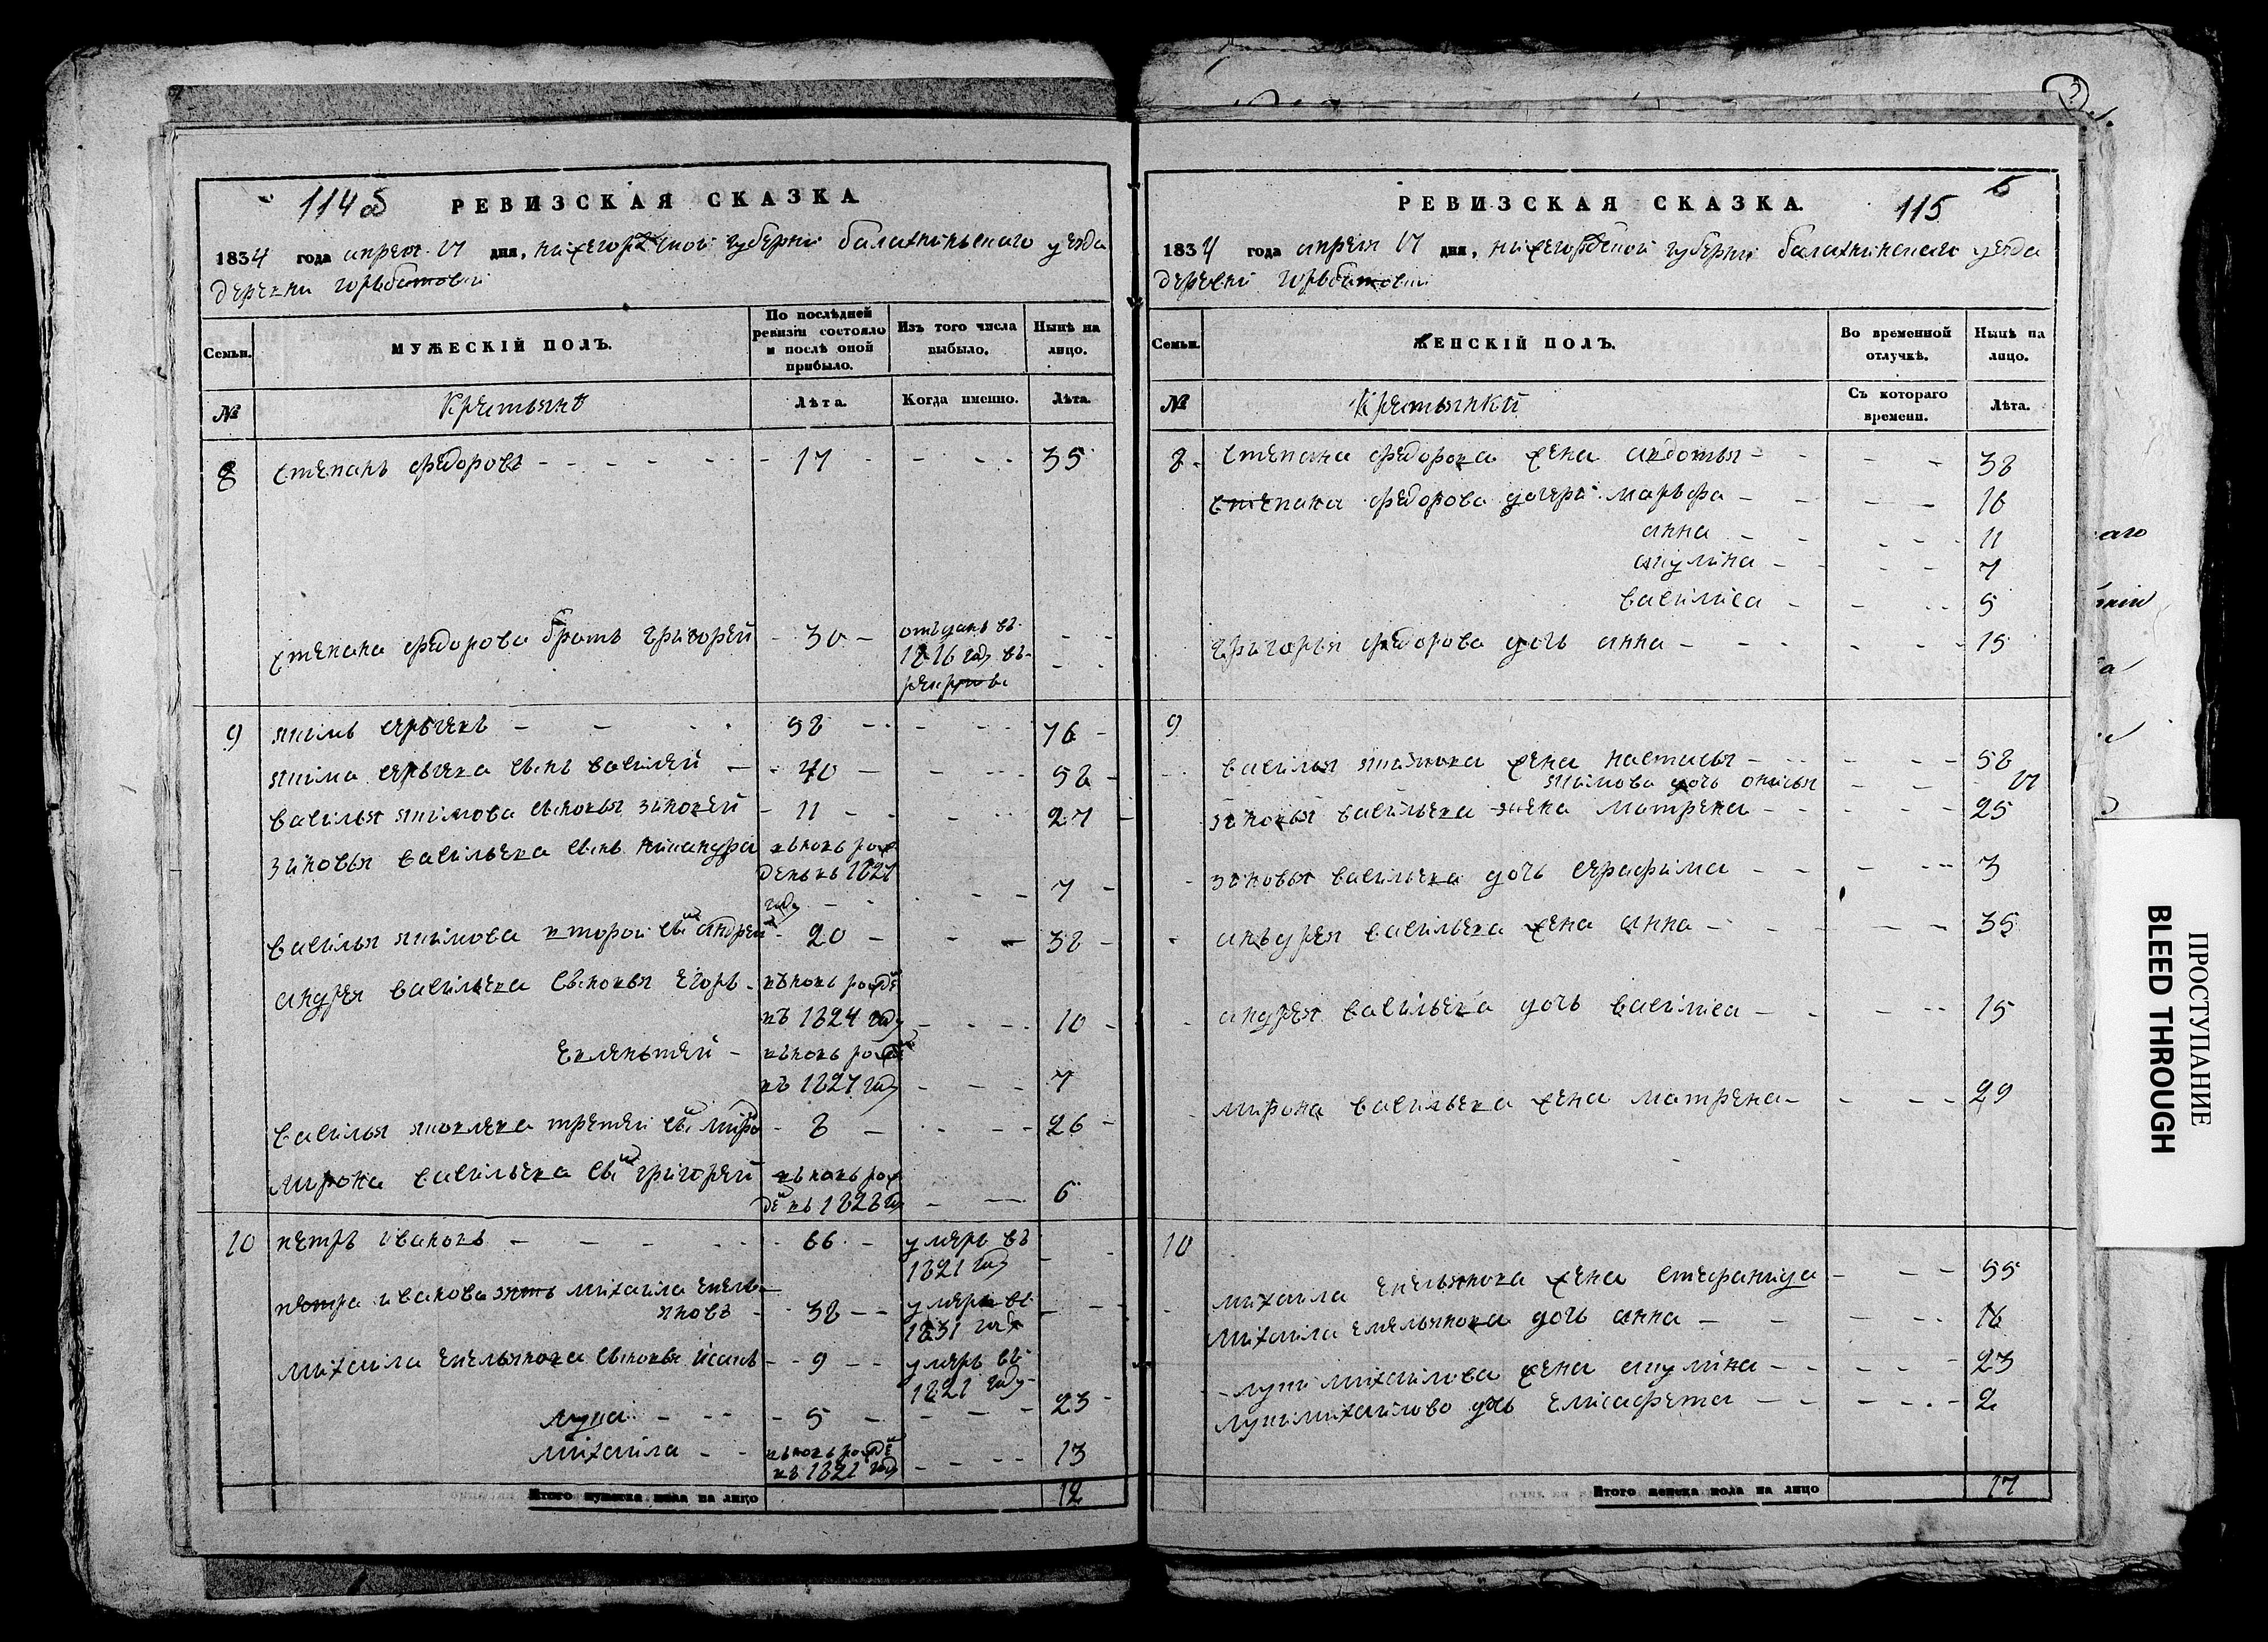 114 об
РЕВИЗСКАЯ СКАЗКА
1834 года апреля 17 дня, нижегородской губерни балахниньскаго уезда
деревни горъбатовы
Семьи.
МУЖЕСКІЙ ПОЛЪ.
По послѣдней ревизіи состояло и послѣ оной прибыло.
Изъ того числа выбыло.
Нынѣ на лицо.
№
Крестьяне
Лѣта.
Когда именно.
Лѣта.
8 степанъ федоровъ 17 35
степана федорова братъ григорей 30 отъданъ въ
1816 году въ
рекруты
9 якимъ 58 76
якима сынъ василей 40 58
василья якимова сыновья зиновей 11 27
зиновья васильева сынъ никандра вновь рож
денъ въ 1827
году 7
василья якимова второй сы андрей 20 38
андрея васильева сыновья егоръ вновь рожде
въ 1824 году 10
вновь рожде
въ 1827 году 7
василья третей сы миро 8 26
мирона васильева сы григорей вновь рож
де въ 1828 го 6
10 петръ ивановъ 66 умеръ въ
1821 году
петра иванова зять михаила емель
яновъ 38 умеръ въ
1831 году
михаила емельянова сыновья исакъ 9 умеръ въ
1821 году
лупа 5 23
михаила вновь рожде
въ 1821 году 13
Итого мужеска пола на лицо 12
115
РЕВИЗСКАЯ СКАЗКА.
1834 года апреля 17 дня, нижегородской губерни балахнинскаго уезда
деревни горъбатовы
Семьи.
ЖЕНСКІЙ ПОЛЪ.
Во временной отлучкѣ.
Нынѣ на лицо.
№
Крестьянки
Съ котораго времени.
Лѣта.
8 степана федорова жена авдотья 38
степана федорова дочери марьфа 16
анна 11
акулина 7
василиса 5
григорья федорова дочь анна 15
9
василья якимова жена настасья 58
якимова дочь 17
зиновья васильева жена матрена 25
зиновья васильева дочь серафима 3
анъдрея васильева жена анна 35
андрея васильева дочь василиса 15
мирона васильева жена матрена 29
10
михаила емельянова жена стефанида 55
михаила емельянова дочь анна 16
лупи михаилова жена акулина 23
лупи михаилово дочь елисафета 2
Итого женска пола на лицо 17
ПРОСТУПАНИЕ
BLEED THROUGH